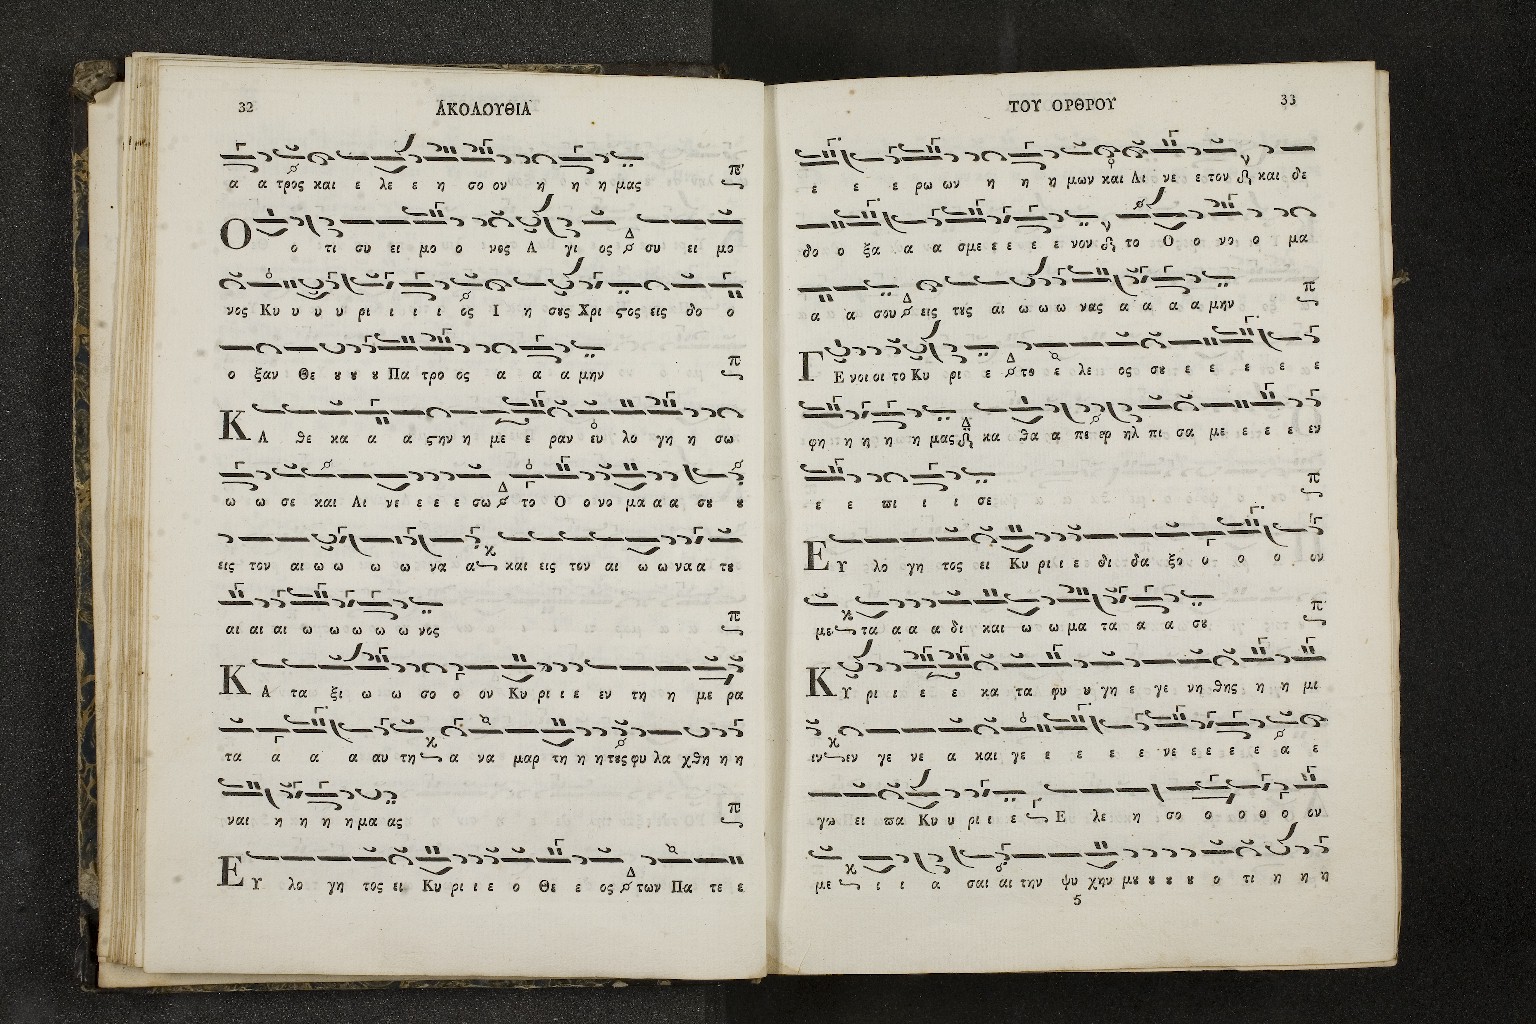 32 ΑΚΟΛΟΥΘΙΑ
α α τρος και ε λε ε η σο ον η η η μας
Ο ο τι συ ει μο ο νος Α γι ος συ ει μο
νος Κυ υ υ υ ρι ι ι ι ος Ι η σȣς Χρι ϛος εις δο ο
ο ξαν Θε ȣ ȣ ȣ Πα τρο ος α α α μην
Κ Α θε κα α α ϛην η με ε ραν ευ λο γη η σω
ω ω σε και Αι νε ε ε ε σω το Ο ονο μα α α σȣ ȣ
εις τον αι ω ω ω ω να α και εις τον αι ω ω να α τȣ
αι αι αι ω ω ω ω ω νος
Κ Α τα ξι ω ω σο ο ον Κυ ρι ι ε εν τη η με ρα
τα α α α αυ τη α να μαρ τη η η τȣς φυ λα χθη η η
ναι η η η η μα ας
Ε Υ λο γη τος ει Κυ ρι ι ε ο Θε ε ος των Πα τε ε
ΤΟΥ ΟΡΘΡΟΥ 33
ε ε ε ρω ων η η η μων και Αι νε ε τον και δε
δο ο ξα α α σμε ε ε ε ε νον το Ο ο νο ο μα
α α σου εις τȣς αι ω ω ω νας α α α α μην
Γ Ε νοι οι το Κυ ρι ε το ε λε ος σȣ ε ε ε ε ε
φη η η η η μας κα θα α πε ερ ηλ πι σα με ε ε ε εν
ε ε πι ι ι σε
Ε Υ λο γη τος ει Κυ ρι ι ε δι δα ξο ο ο ο ον
με τα α α α δι και ω ω μα τα α α σȣ
Κ Υ ρι ι ε ε κα τα φυ υ γη ε γε νη θης η η μι
ιν εν γε νε α και γε ε ε ε ε νε ε ε ε ε α ε
γω ει πα Κυ υ ρι ι ε Ε λε η σο ο ο ο ο ον
με ι ι α σαι αι την ψυ χην μȣ ȣ ȣ ȣ ο τι η η η
5